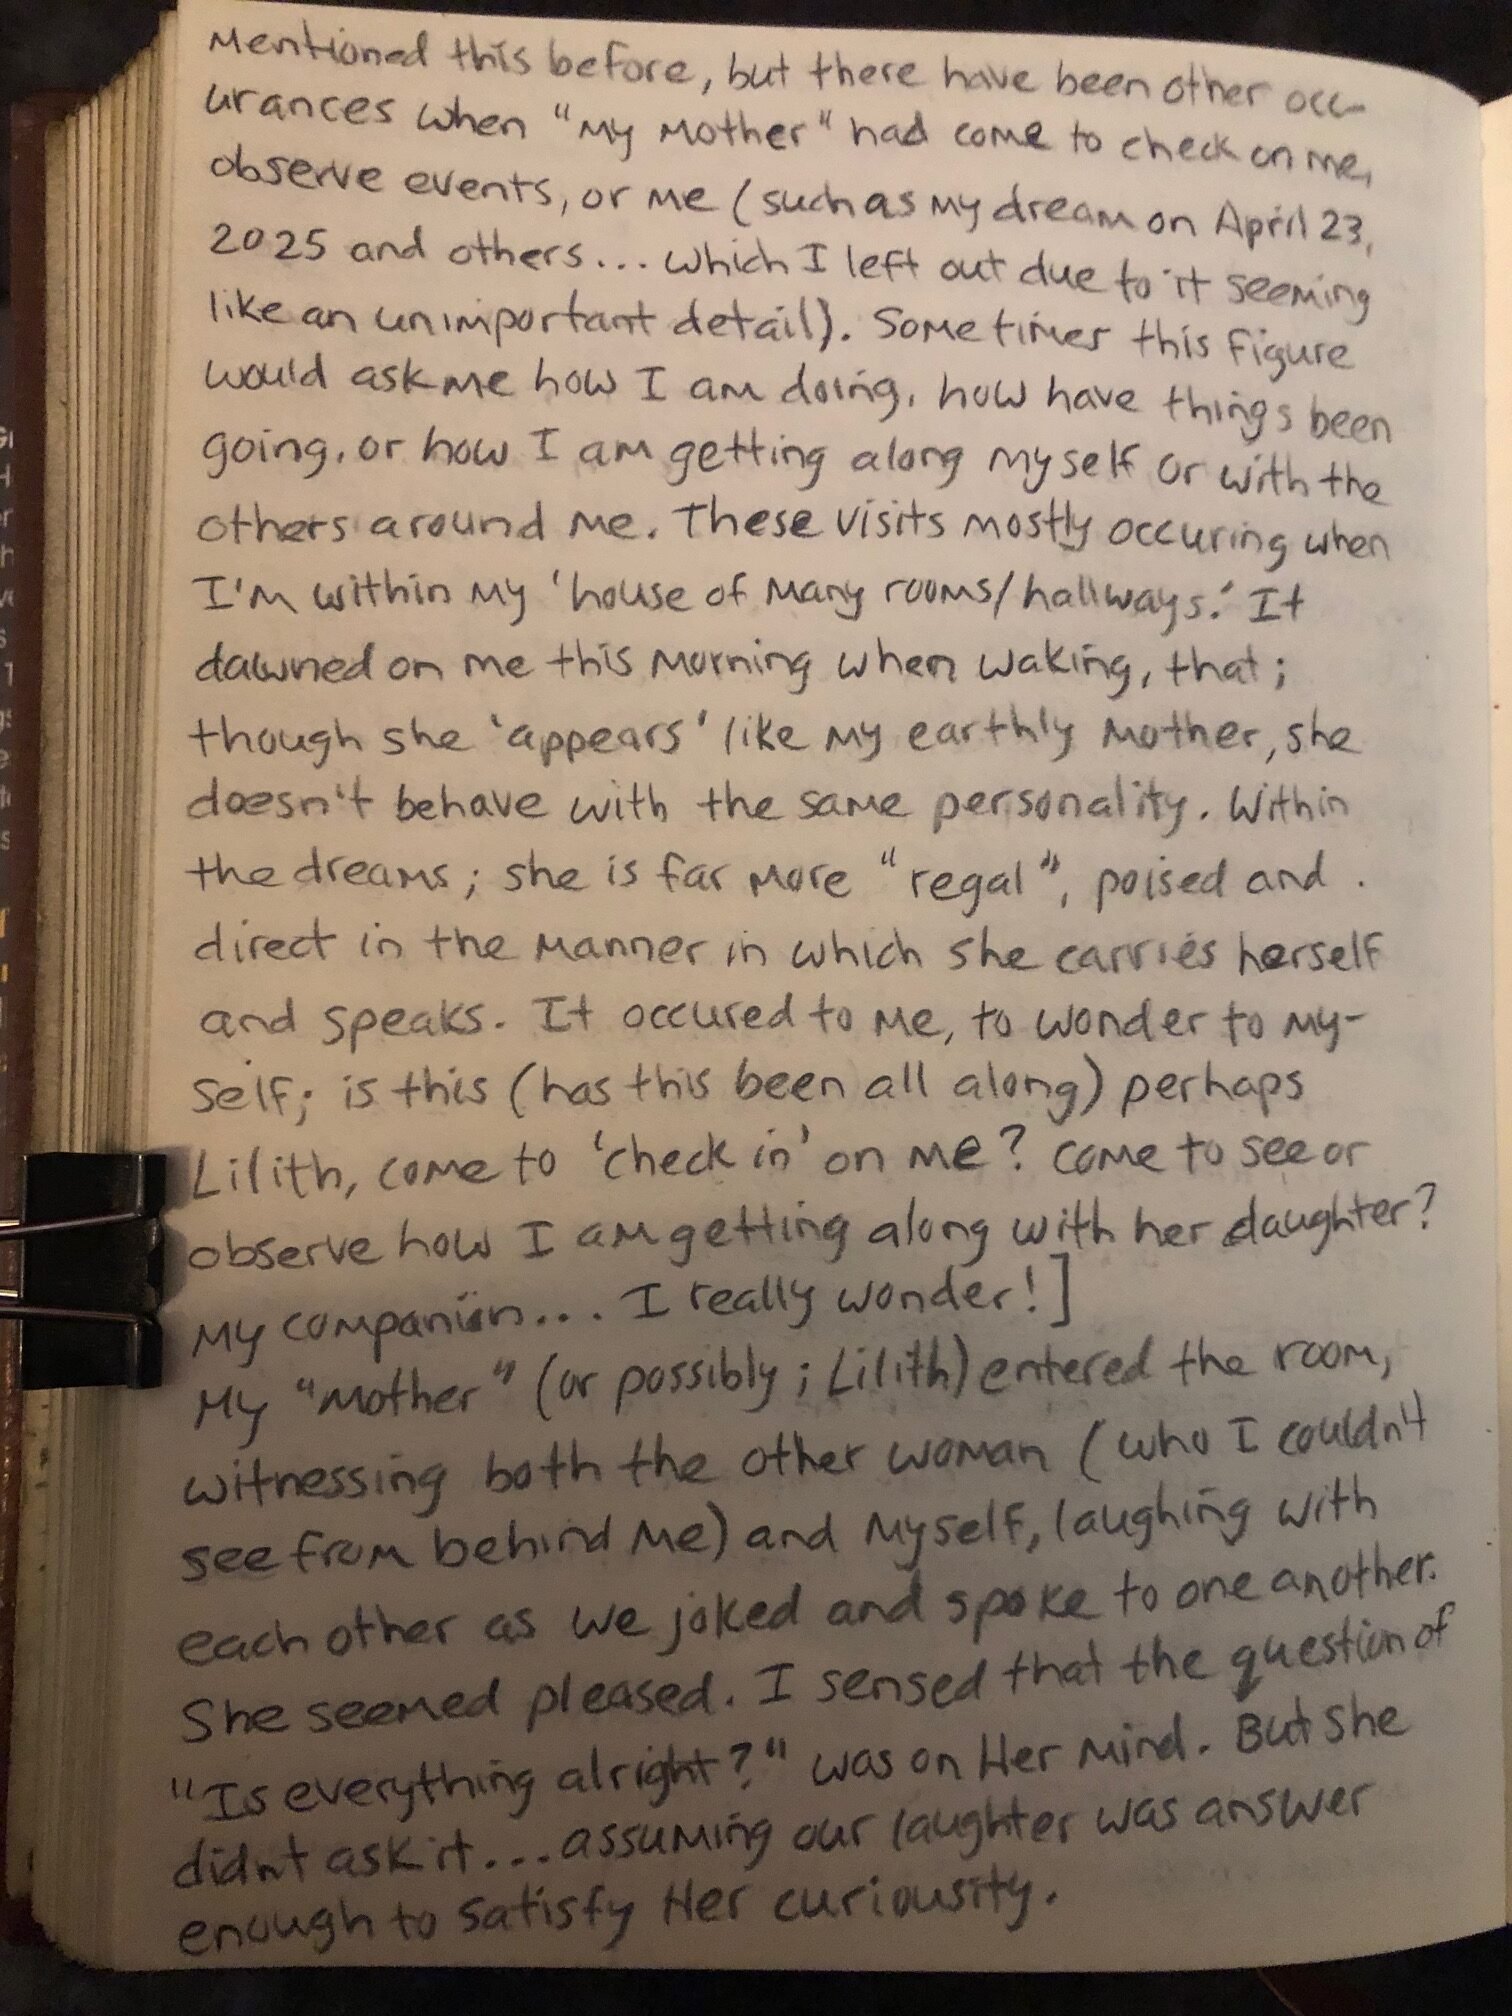 Mentioned this before, but there have been other occ-
urances when "My Mother" had come to check on me,
observe events, or me (such as my dream on April 23,
2025 and others... which I left out due to it seeming
like an unimportant detail). Sometimes this figure
would ask me how I am doing, how have things been
going, or how I am getting along myself or with the
others around me. These visits mostly occuring when
I'm within my 'house of many rooms/hallways.' It
dawned on me this morning when waking, that;
though she 'appears' like my earthly mother, she
doesn't behave with the same personality. Within
the dreams; she is far more "regal", poised and
direct in the manner in which she carries herself
and speaks. It occured to me, to wonder to my-
self; is this (has this been all along) perhaps
Lilith, come to 'check in' on me? Come to see or
observe how I am getting along with her daughter?
My companion... I really wonder!]
My "Mother" (or possibly; Lilith) entered the room,
witnessing both the other woman (who I couldn't
see from behind me) and myself, laughing with
each other as we joked and spoke to one another.
She seemed pleased. I sensed that the question of
"Is everything alright?" was on Her mind. But she
didnt ask it... assuming our laughter was answer
enough to satisfy Her curiousity.